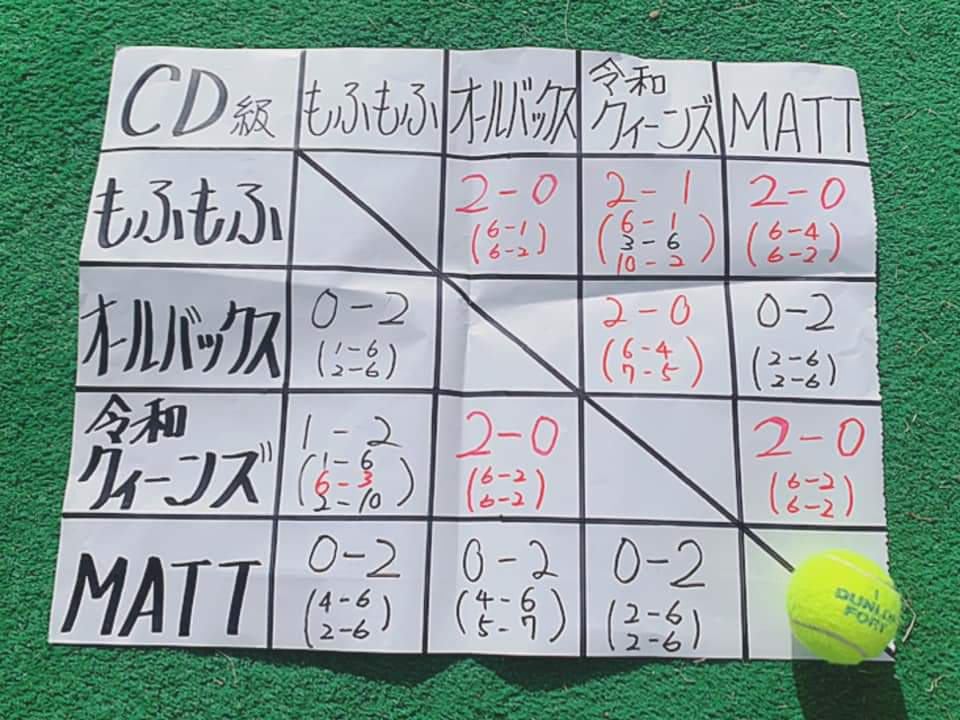 CD級 もふもふ オールバックス 令和クィーンズ MATT
もふもふ
2-0
(6-1
6-2)
2-1
(6-1
3-6
10-2)
2-0
(6-4
6-2)
オールバックス
0-2
(1-6
2-6)
2-0
(6-4
7-5)
0-2
(2-6
2-6)
令和
クィーンズ
1-2
(1-6
6-3
2-10)
2-0
(6-2
6-2)
2-0
(6-2
6-2)
MATT
0-2
(4-6
2-6)
0-2
(4-6
5-7)
0-2
(2-6
2-6)
1
DUNLOP
FORT